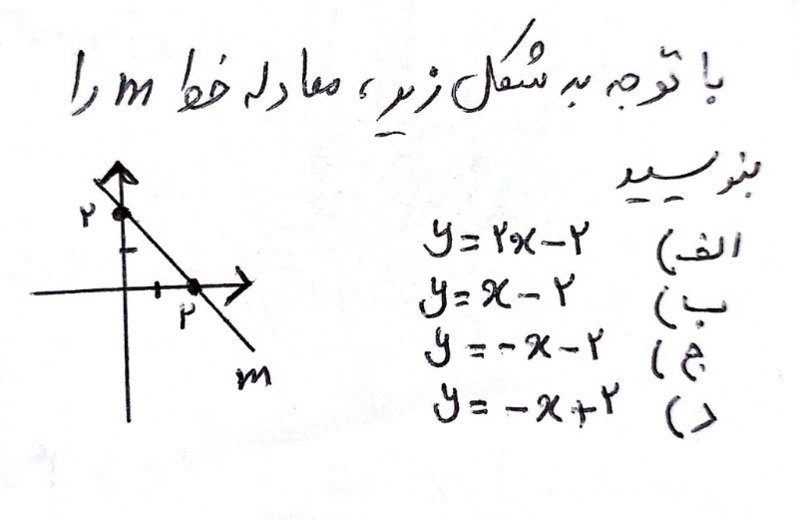 با توجه به شکل زیر، معادله خط m را
بنویسید
الف) y = ۲x - ۲
ب) y = x - ۲
ج) y = -x - ۲
د) y = -x + ۲
۲
۲
m